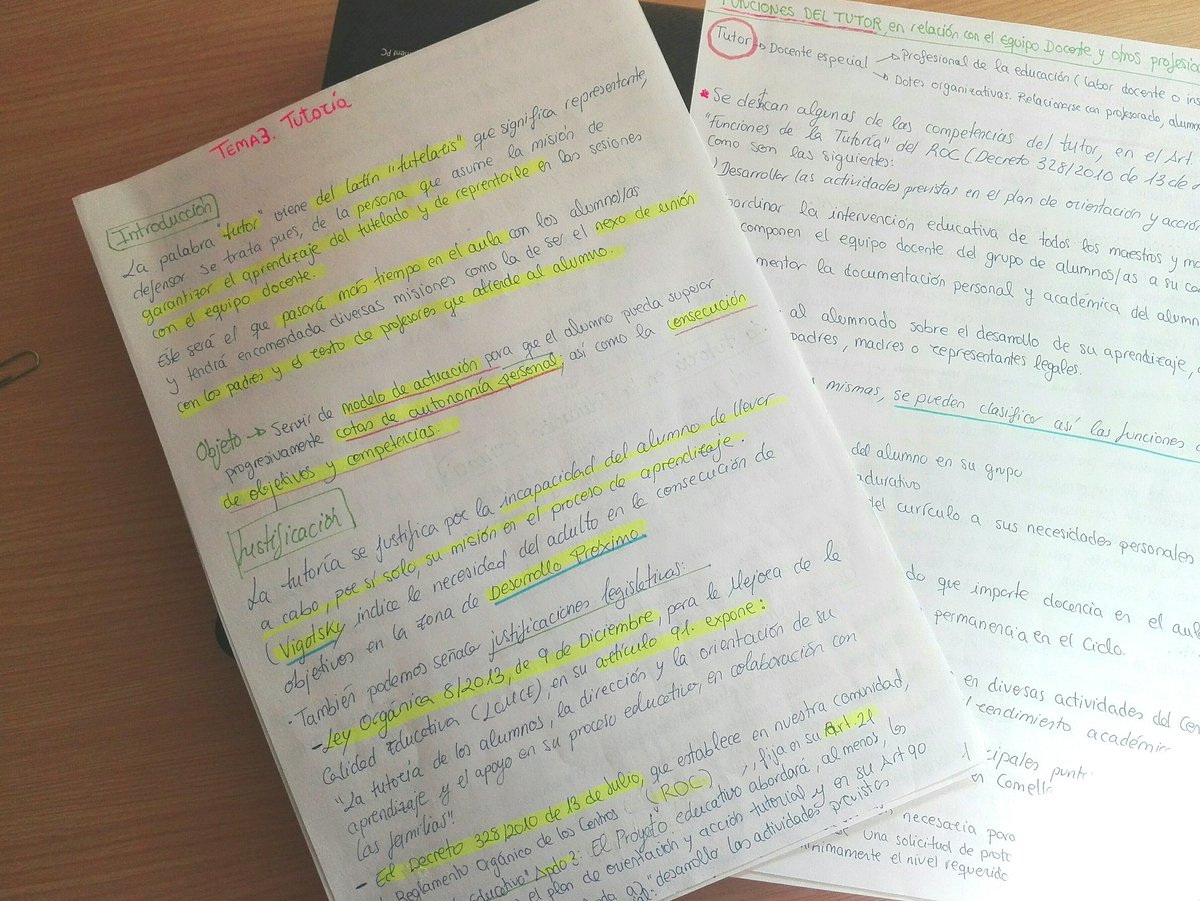 TEMA 3. Tutoría
Introducción
La palabra "tutor" viene del latín "tutelaris" que significa representante,
defensor. Se trata pues, de la persona que asume la misión de
garantizar el aprendizaje del tutelado y de reprentarle en las sesiones
con el equipo docente.
Este será el que pasará más tiempo en el aula con los alumnos/as
y tendrá encomendada diversas misiones como la de ser el nexo de unión
con los padres y el resto de profesores que atiende al alumno.
Objeto → Servir de modelo de actuación para que el alumno pueda superar
progresivamente cotas de autonomía personal, así como la consecución
de objetivos y competencias.
Justificación
La tutoría se justifica por la incapacidad del alumno de llevar
a cabo, por sí solo, su misión en el proceso de aprendizaje.
(Vigotsky indice la necesidad del adulto en la consecución de
objetivos en la zona de Desarrollo Próximo.
- También podemos señalar justificaciones legislativas:
- Ley Orgánica 8/2013, de 9 de Diciembre, para la Mejora de la
Calidad Educativa (LOMCE), en su artículo 91. expone:
"La tutoría de los alumnos, la dirección y la orientación de su
aprendizaje y el apoyo en su proceso educativo, en colaboración con
las familias".
- El Decreto 328/2010 de 13 de Julio, que establece en nuestra comunidad,
Reglamento Orgánico de los Centros (ROC), fija en su Art. 21
Educativo" Apdo 2: El Proyecto educativo abordará, al menos, los
el plan de orientación y acción tutorial y en su Art 90
a) "desarrollar las actividades previstas
FUNCIONES DEL TUTOR, en relación con el Equipo Docente y otros profesio
Tutor → Docente especial → Profesional de la educación (labor docente o ins
→ Dotes organizativas. Relacionarse con profesorado, alumn
* Se destacan algunas de las competencias del tutor, en el Art
"Funciones de la Tutoría" del ROC (Decreto 328/2010 de 13 de
como son las siguientes:
) Desarrollar las actividades previstas en el plan de orientación y acció
oordinar la intervención educativa de todos los maestros y ma
componen el equipo docente del grupo de alumnos/as a su ca
mentar la documentación personal y académica del alumn
al alumnado sobre el desarrollo de su aprendizaje,
padres, madres o representantes legales.
mismas, se pueden clasificar así las funciones
del alumno en su grupo
aducativo
del currículo a sus necesidades personales
do que imparte docencia en el aul
permanencia en el Ciclo.
en diversas actividades del Cen
rendimiento académic
cipales punt
en Comella
necesaria para
una solicitud de
nimamente el nivel requerido